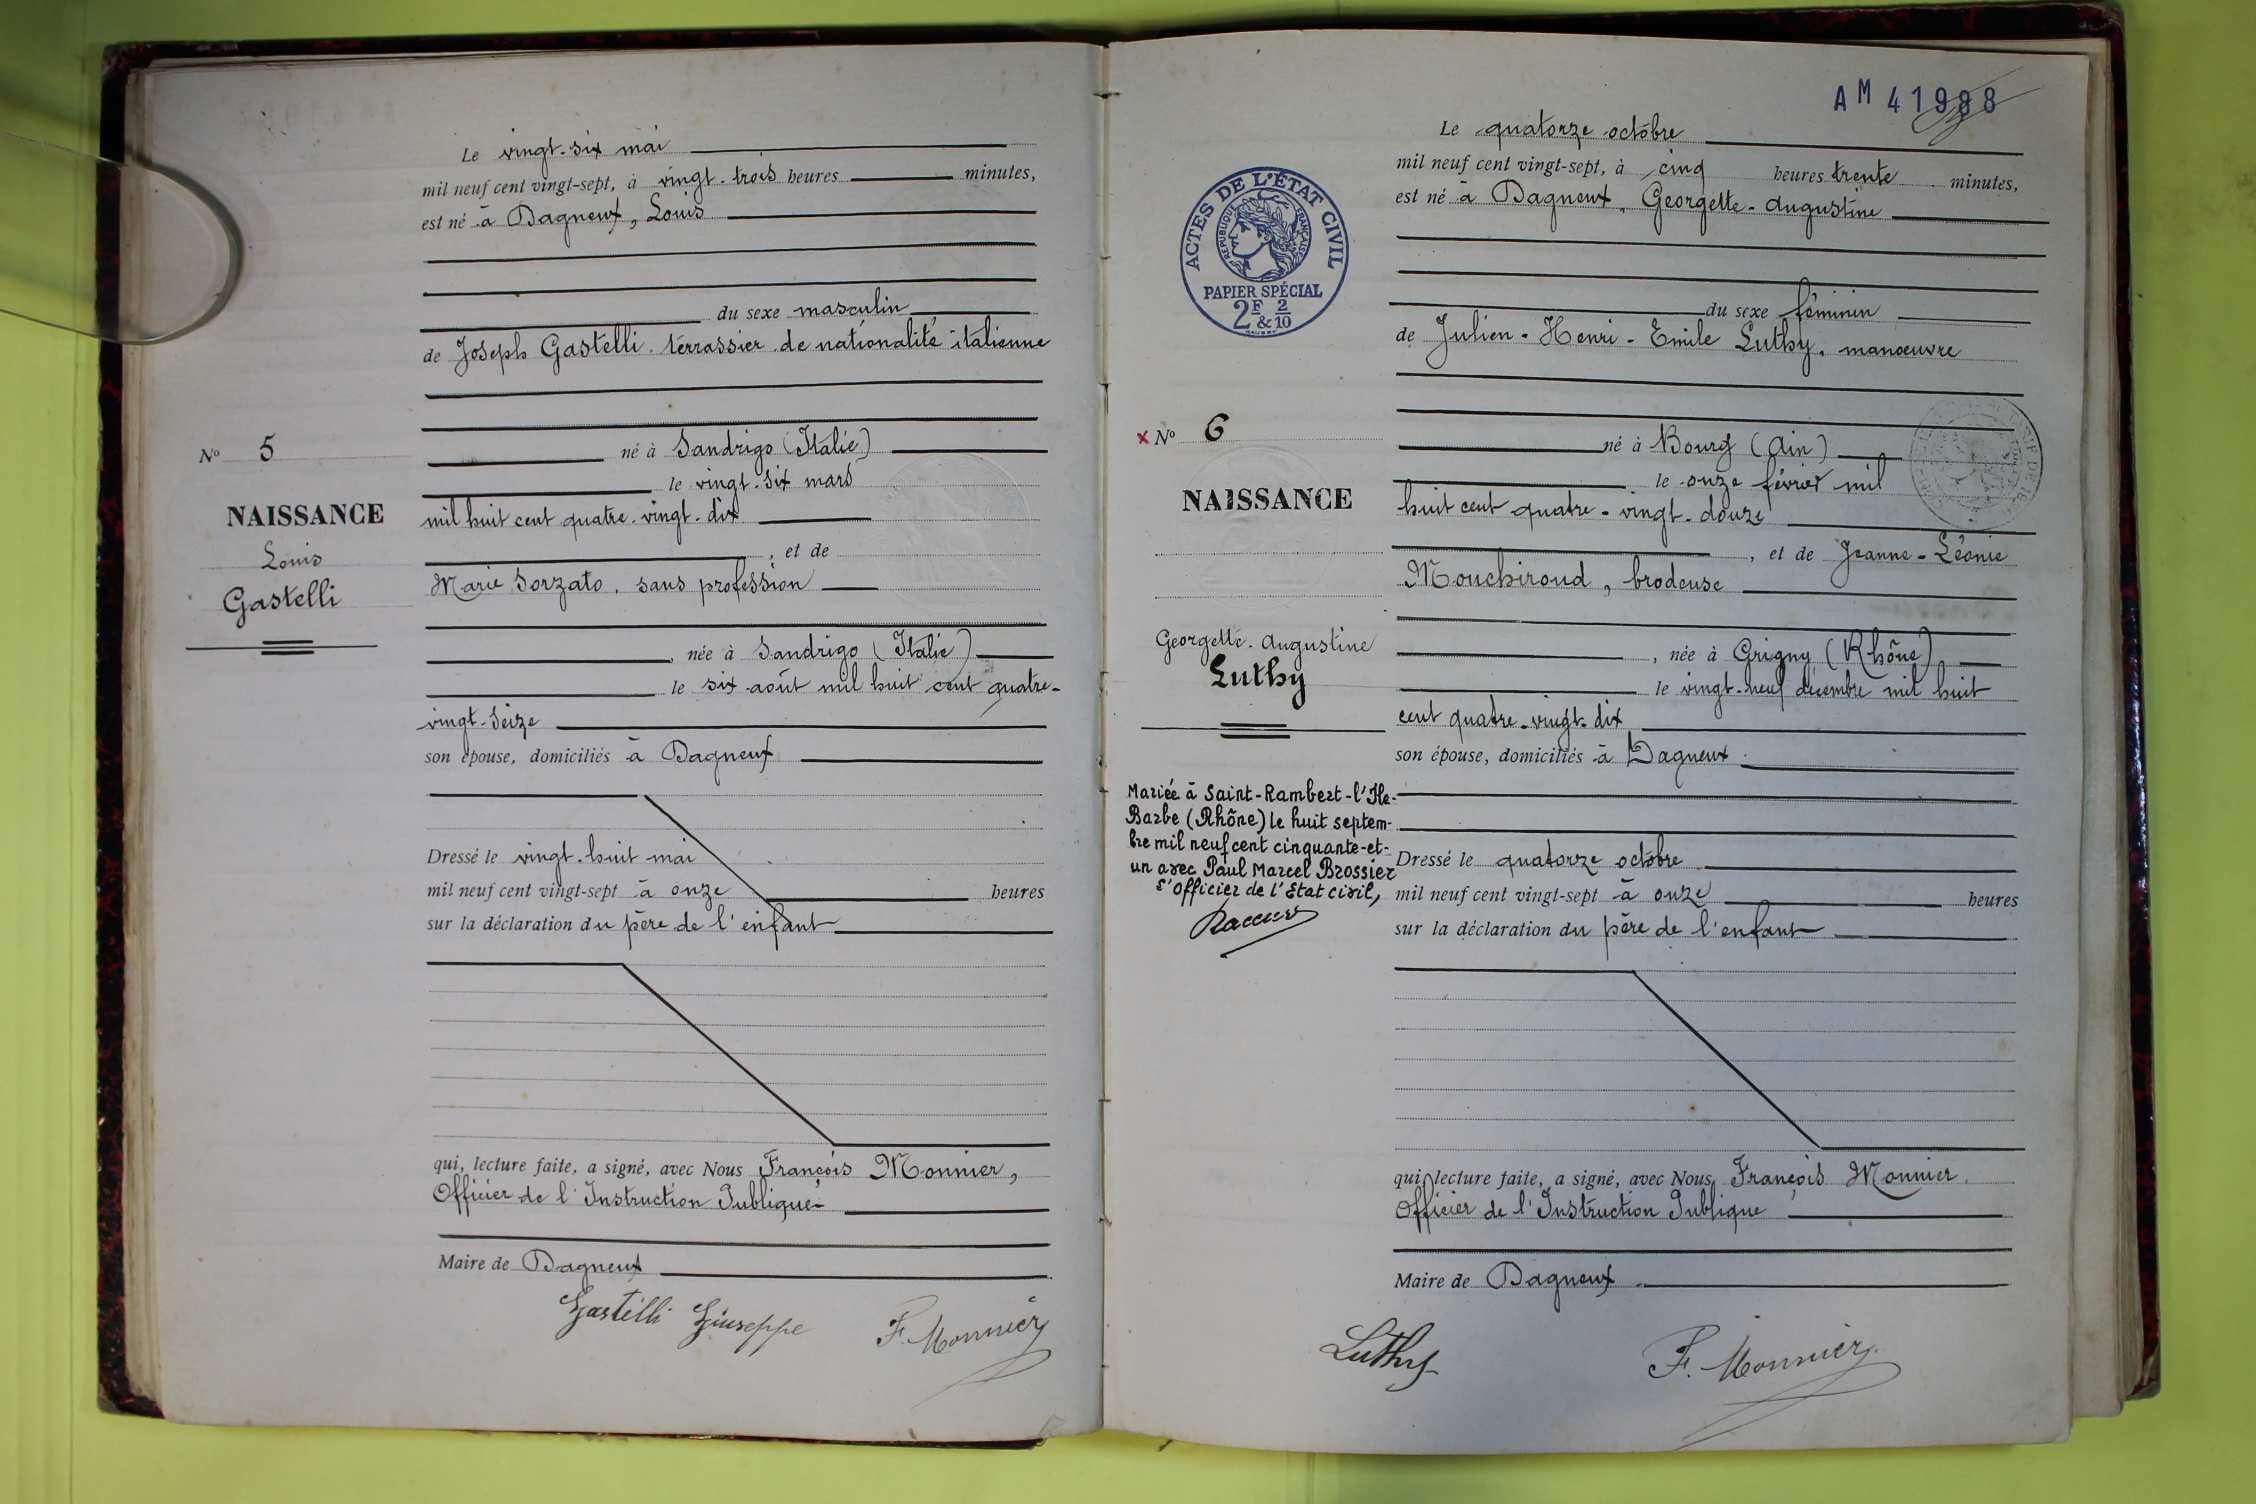 Le vingt-six mai
mil neuf cent vingt-sept, à vingt-trois heures minutes,
est né à Dagneux, Louis
du sexe masculin
de Joseph Gastelli. terrassier de nationalité italienne
né à Sandrigo (Italie)
le vingt-six mars
mil huit cent quatre-vingt-dix
, et de
Marie Sorzato, sans profession
, née à Sandrigo (Italie)
le six août mil huit cent quatre-
vingt-seize
son épouse, domiciliés à Dagneux
Dressé le vingt-huit mai
mil neuf cent vingt-sept à onze heures
sur la déclaration du père de l'enfant
qui, lecture faite, a signé, avec Nous François Monnier,
Officier de l'Instruction Publique
Maire de Dagneux
Gastelli Giuseppe F. Monnier
No 5
NAISSANCE
Louis
Gastelli
AM 41988
Le quatorze octobre
mil neuf cent vingt-sept, à cinq heures trente minutes,
est né à Dagneux, Georgette-Augustine
du sexe féminin
de Julien-Henri-Emile Luthy, manœuvre
né à Bourg (Ain)
le onze février mil
huit cent quatre-vingt-douze
, et de Jeanne-Léonie
Mouchiroud, brodeuse
, née à Grigny (Rhône)
le vingt-neuf décembre mil huit
cent quatre-vingt-dix
son épouse, domiciliés à Dagneux
Dressé le quatorze octobre
mil neuf cent vingt-sept à onze heures
sur la déclaration du père de l'enfant
qui, lecture faite, a signé, avec Nous, François Monnier.
Officier de l'Instruction Publique
Maire de Dagneux
Luthy F. Monnier
ACTES DE L'ÉTAT CIVIL
RÉPUBLIQUE FRANÇAISE
PAPIER SPÉCIAL
2F & 2/10
x No 6
NAISSANCE
Georgette-Augustine
Luthy
Mariée à Saint-Rambert-l'Ile-
Barbe (Rhône) le huit septem-
bre mil neuf cent cinquante-et-
un avec Paul Marcel Brossier
L'Officier de l'Etat civil,